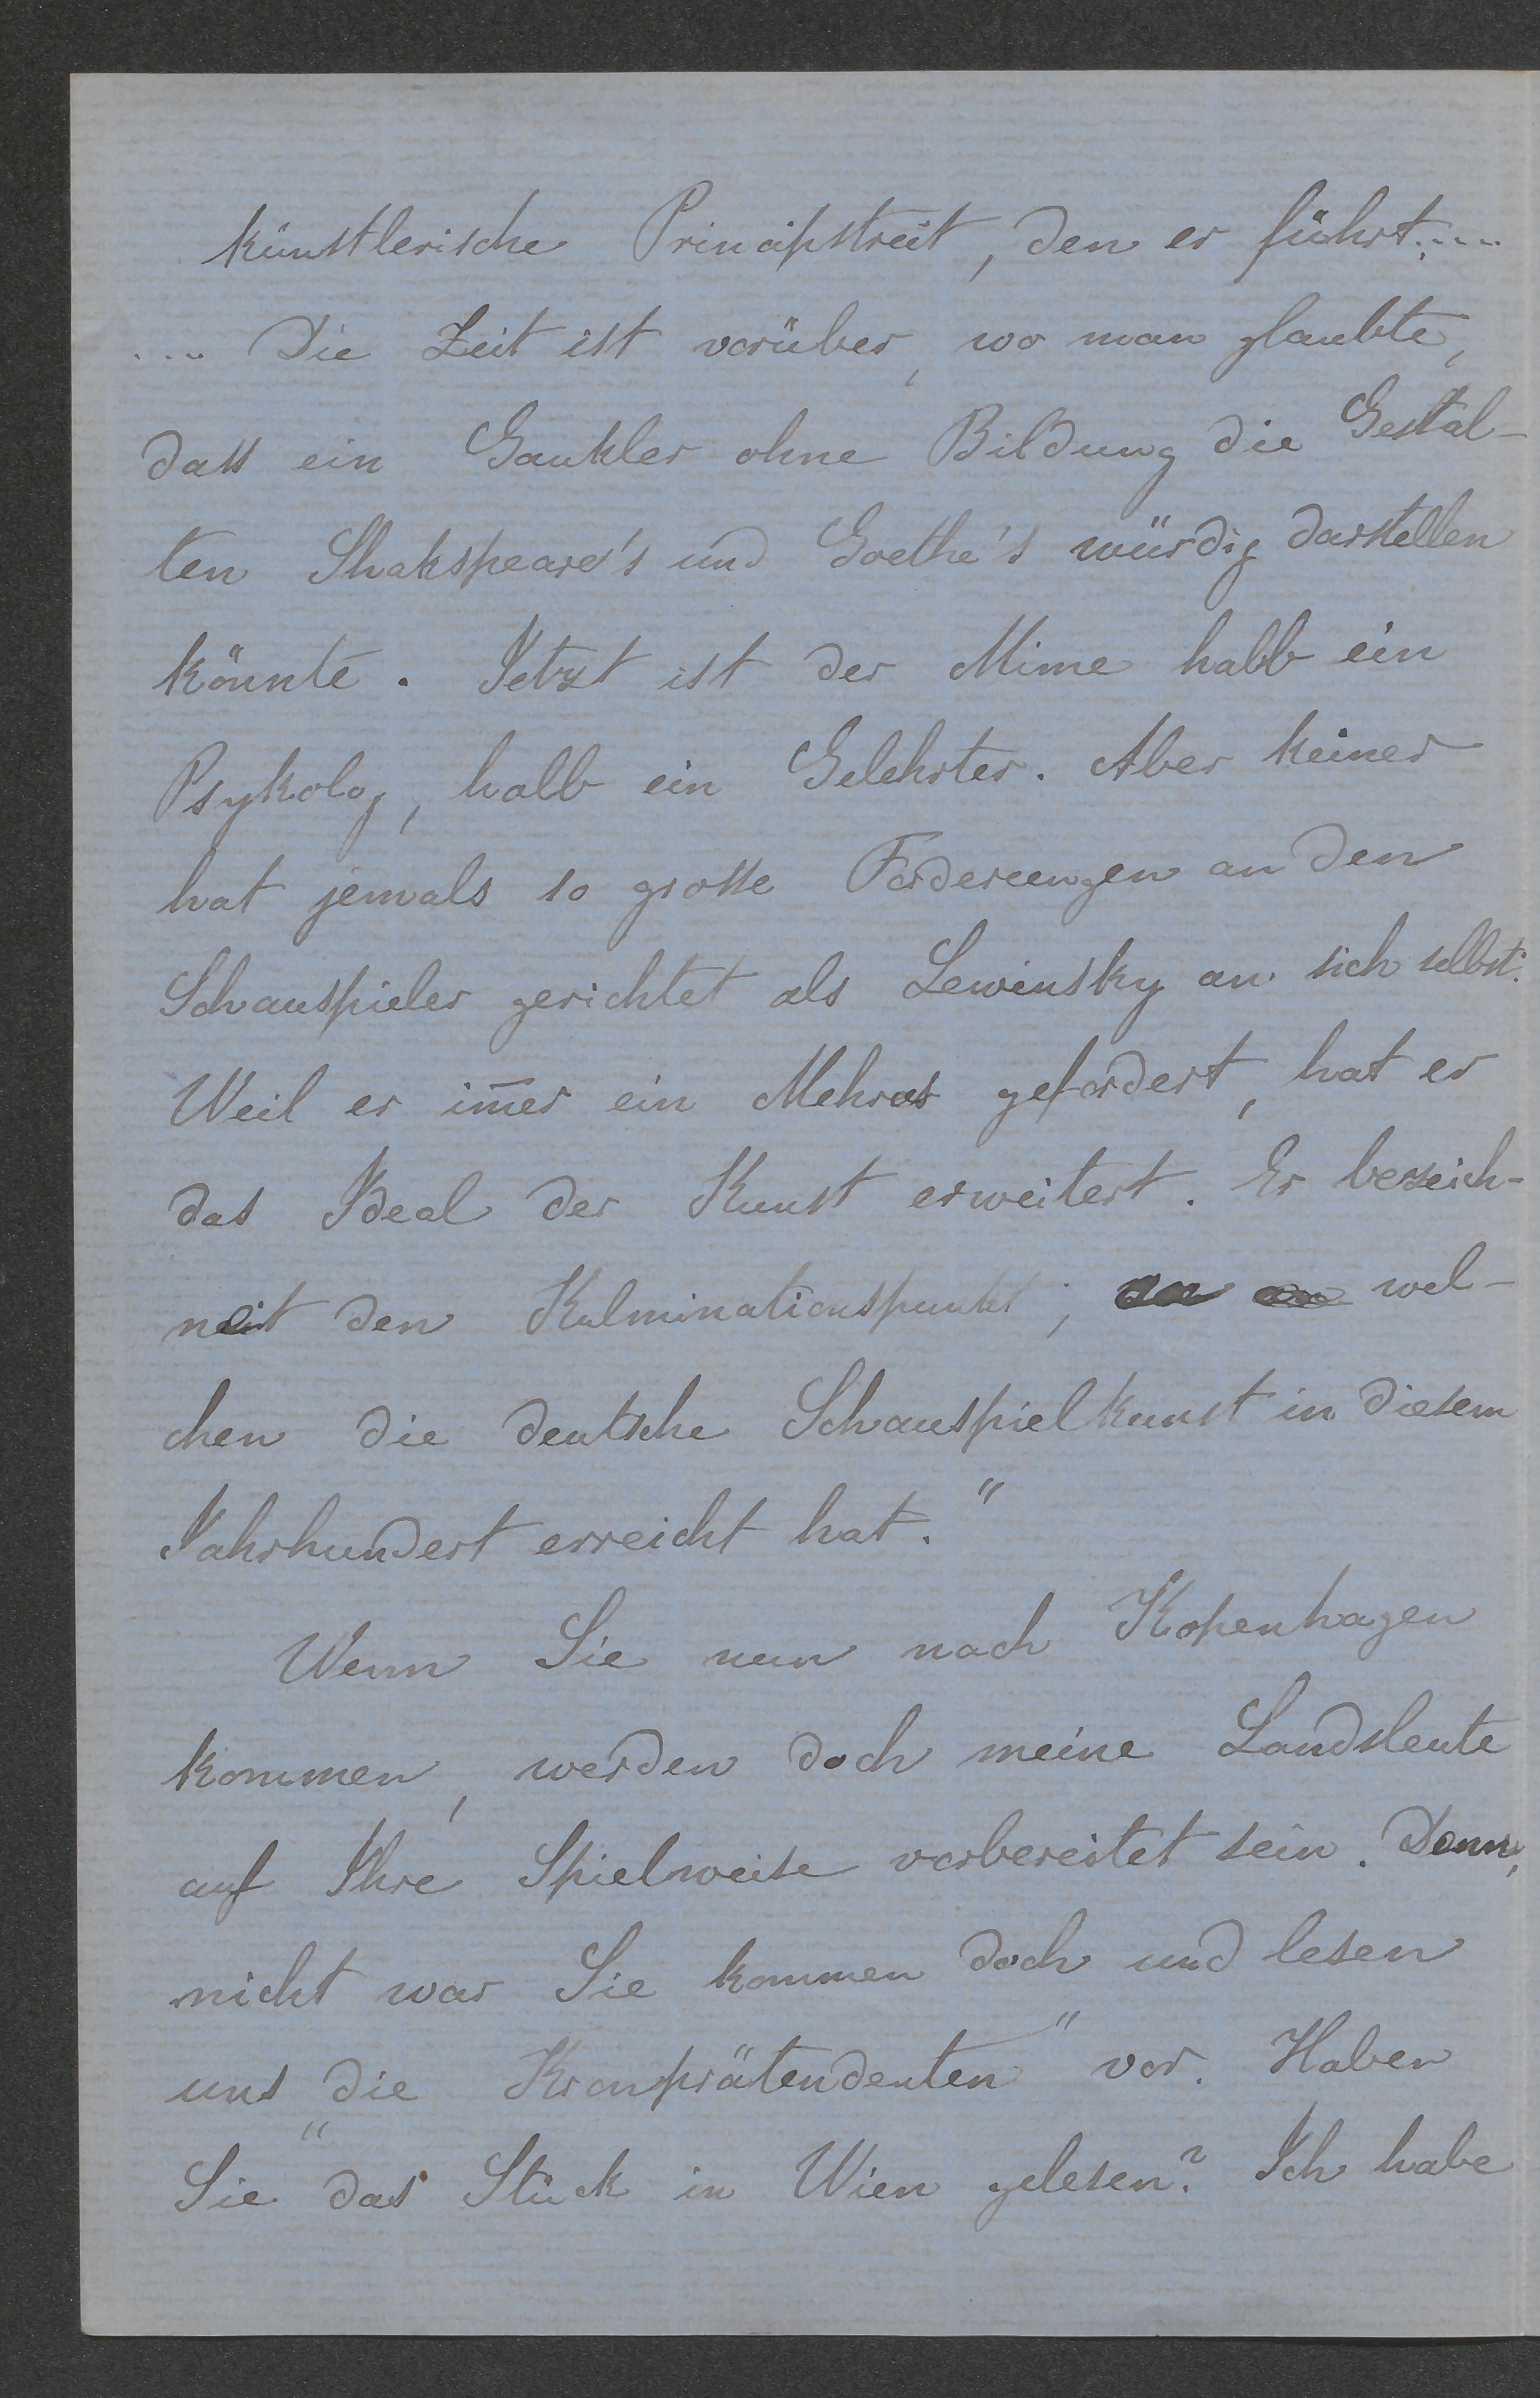 künstlerische Principstreit, den er führt.....
.... Die Zeit ist vorüber, wo man glaubte,
dass ein Gaukler ohne Bildung die Gestal-
ten Shakspeare's und Goethe's würdig darstellen
könnte. Jetzt ist der Mime halb ein
Psykolog, halb ein Gelehrter. Aber keiner
hat jemals so grosse Forderungen an den
Schauspieler gerichtet als Lewinsky an sich selbst.
Weil er im̄er ein Mehres gefordert, hat er
das Ideal der Kunst erweitert. Er bezeich-
net den Kulminationspunkt, wel-
chen die deutsche Schauspielkunst in diesem
Jahrhundert erreicht hat."
Wenn Sie nun nach Kopenhagen
kommen, werden doch meine Landsleute
auf Ihre Spielweise vorbereitet sein. Denn,
nicht war Sie kommen doch und lesen
uns „die Kronprätendenten" vor. Haben
Sie das Stück in Wien gelesen? Ich habe